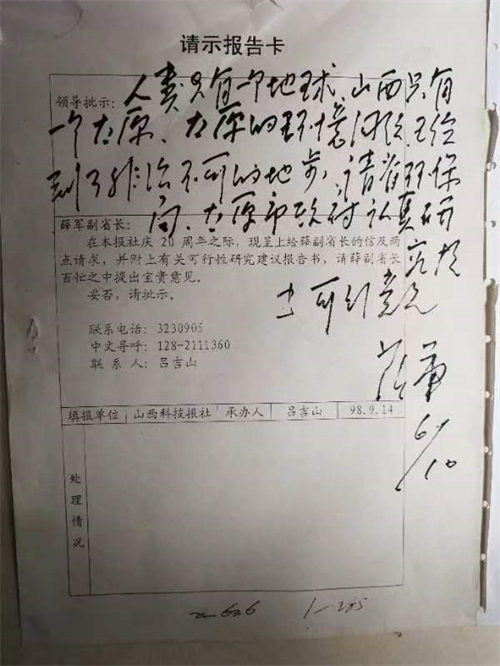 请示报告卡
领导批示:
人类只有一个地球、山西只有
一个太原、太原的环境 已经
到了非治不可的地步,请省环保
局、太原市政府认真研究提
出可行意见
薛军副省长:
在本报社庆20周年之际,现呈上给薛副省长的信及两
点请求,并附上有关可行性研究建议报告书,请薛副省长
百忙之中提出宝贵意见。
妥否,请批示。
薛军
6/10
联系电话: 3230905
中文寻呼: 128-2111360
联 系 人: 吕吉山
填报单位 山西科技报社 承办人 吕吉山 98.9.14
处理情况